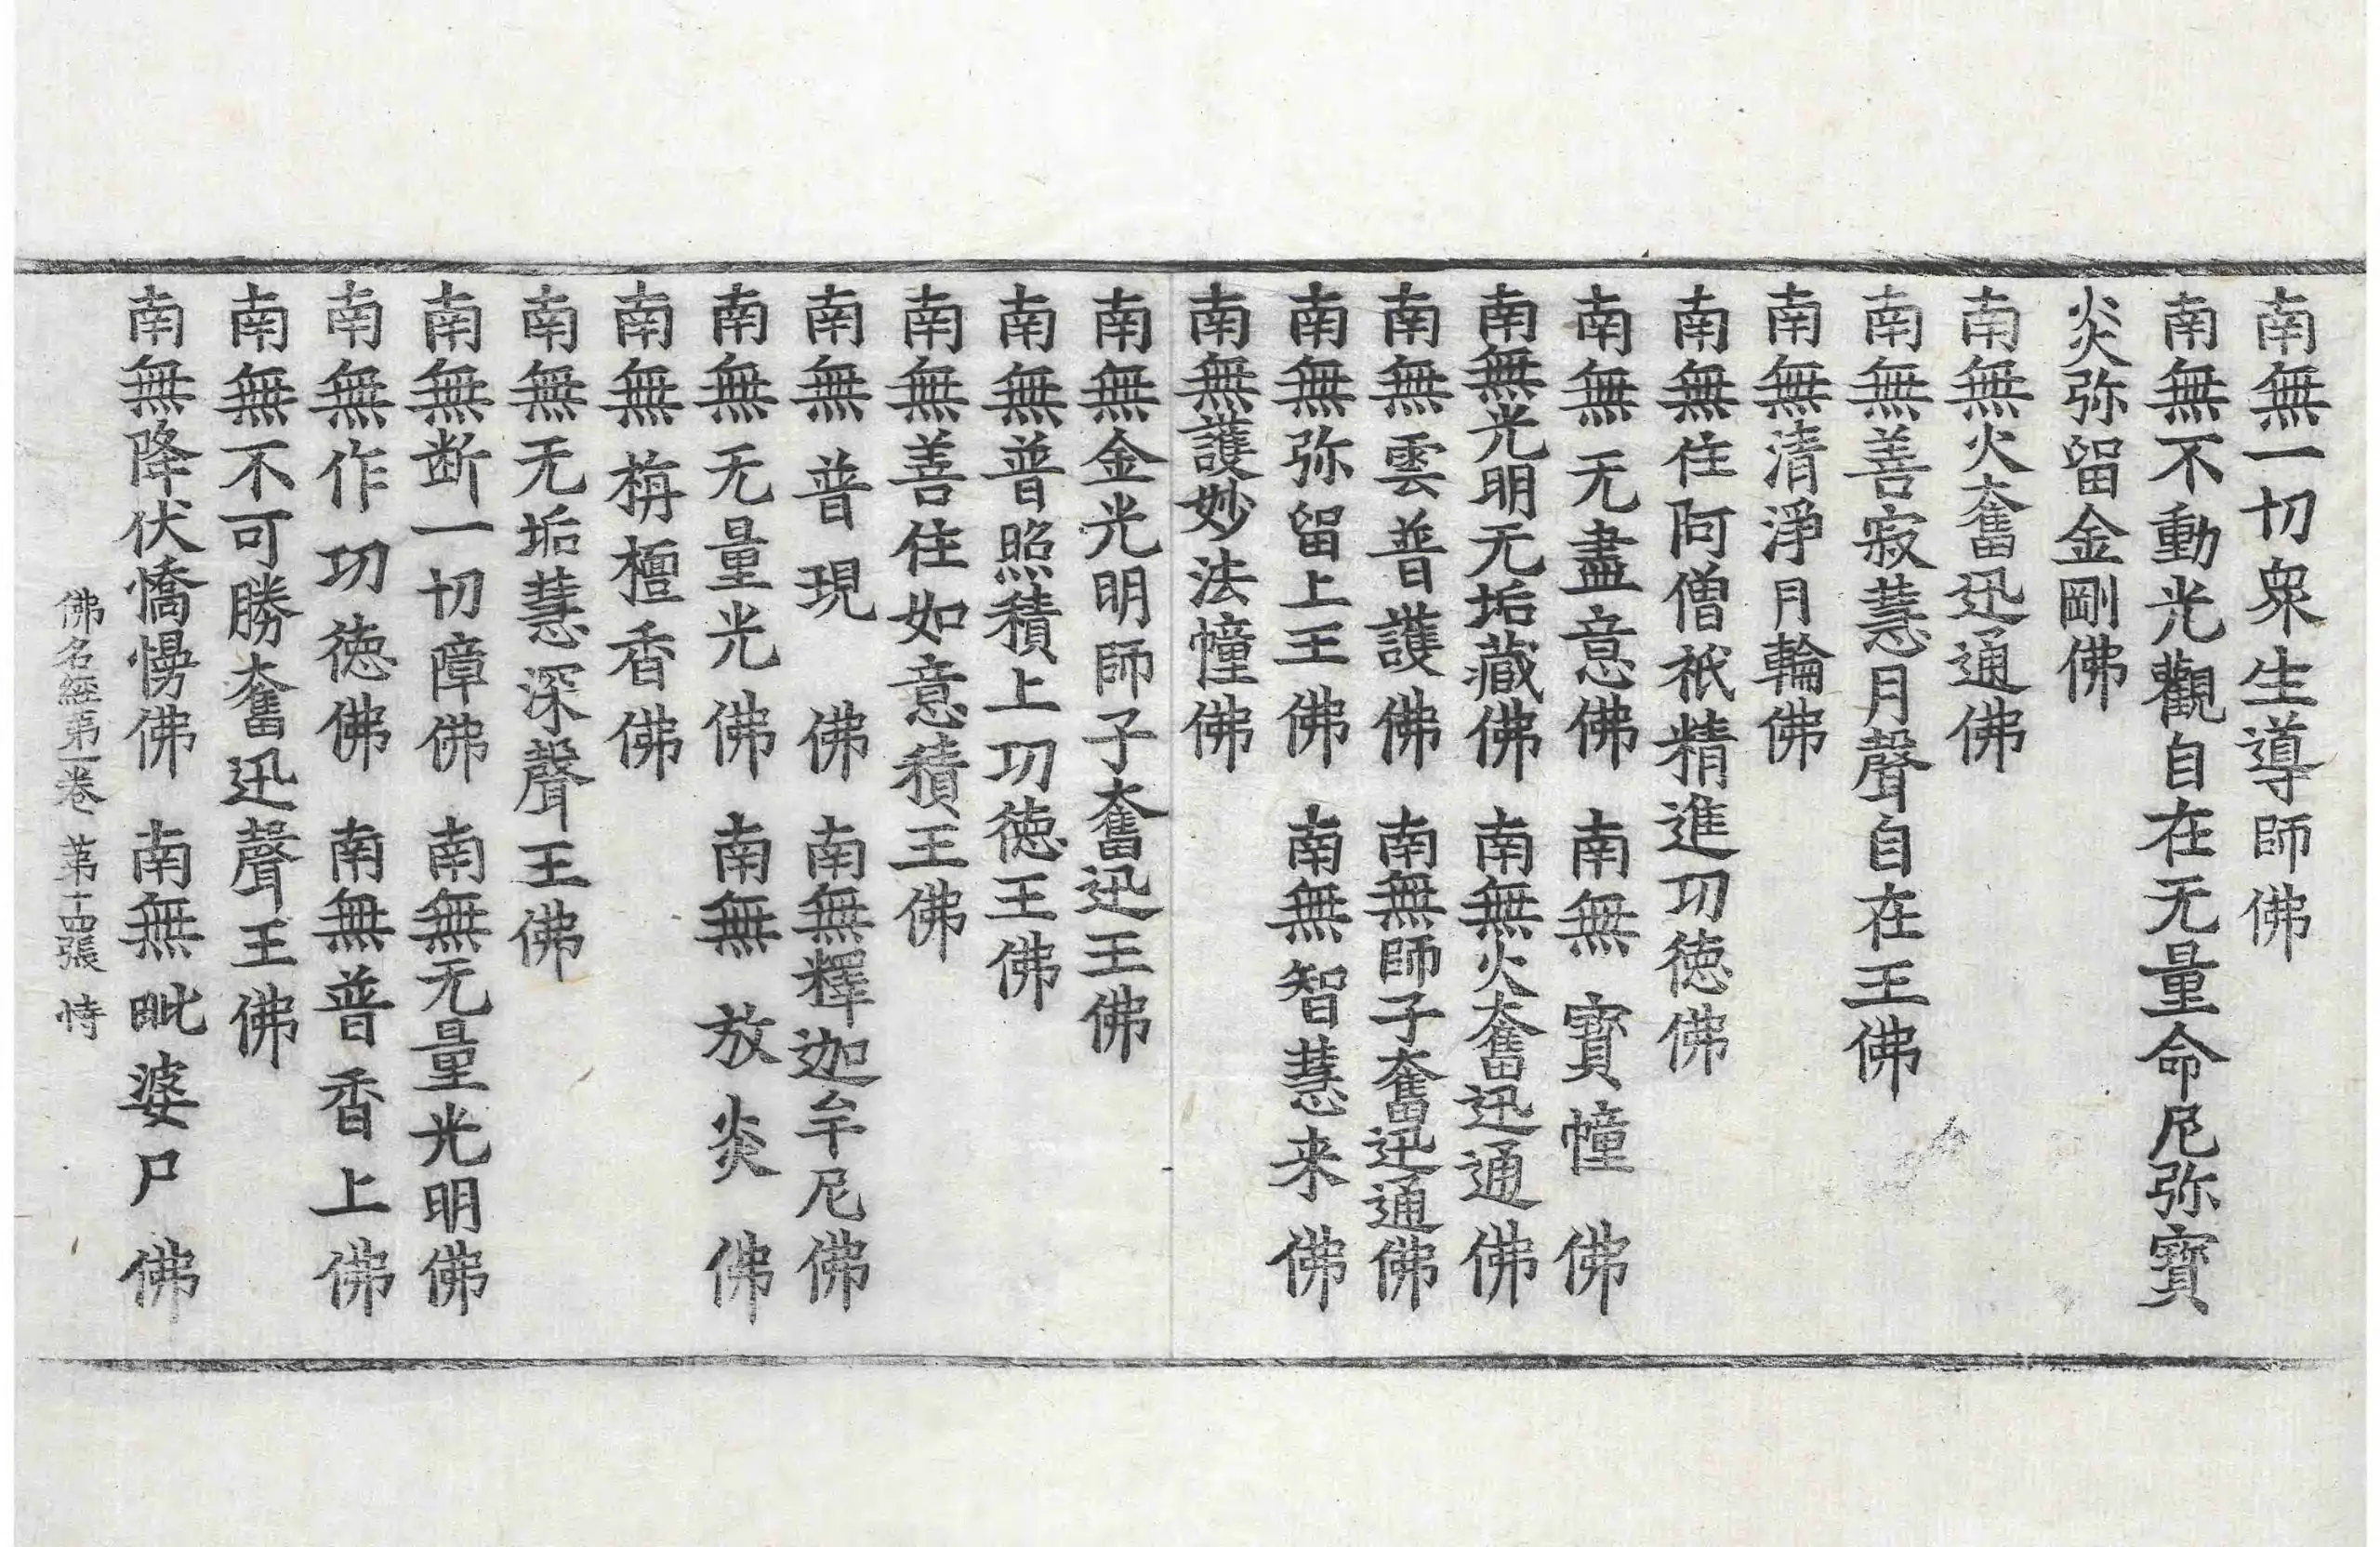 南無一切衆生導師佛
南無不動光觀自在无量命尼弥寶
炎弥留金剛佛
南無火奮迅通佛
南無善寂慧月聲自在王佛
南無清淨月輪佛
南無住阿僧祇精進功德佛
南無无盡意佛　南無寶幢佛
南無光明无垢藏佛　南無火奮迅通佛
南無雲普護佛　南無師子奮迅通佛
南無弥留上王佛　南無智慧来佛
南無護妙法幢佛
南無金光明師子奮迅王佛
南無普照積上功德王佛
南無善住如意積王佛
南無普現佛　南無釋迦牟尼佛
南無无量光佛　南無放炎佛
南無栴檀香佛
南無无垢慧深聲王佛
南無断一切障佛　南無无量光明佛
南無作功德佛　南無普香上佛
南無不可勝奮迅聲王佛
南無降伏憍慢佛　南無毗婆尸佛
佛名經第一卷　第十四張　恃